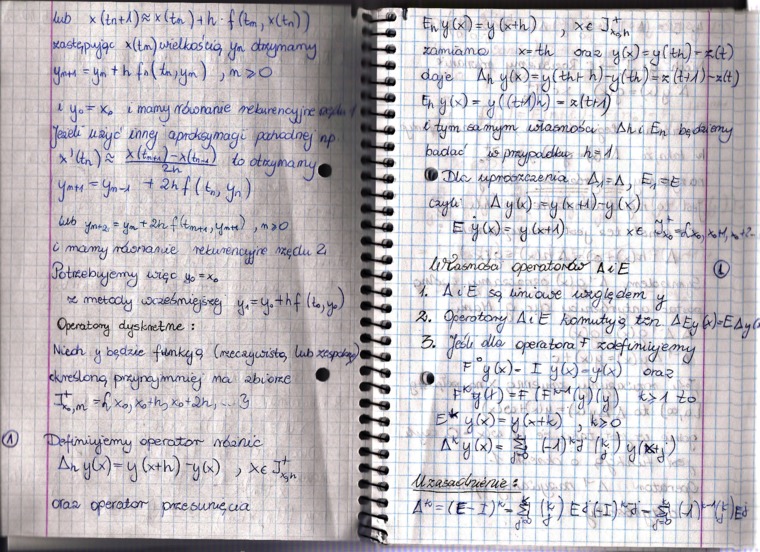 lub x(tn+1) ≈ x(tn) + h · f(tn, x(tn))
zastępując x(tn) wielkością yn otrzymamy
yn+1 = yn + h fn(tn, yn) , n ≥ 0
i y0 = x0 i mamy równanie rekurencyjne rzędu 1
Jeżeli użyć innej aproksymacji pochodnej np.
x'(tn) ≈ (x(tn+1) - x(tn-1)) / 2h to otrzymamy
yn+1 = yn-1 + 2h f(tn, yn)
lub yn+2 = yn + 2h f(tn+1, yn+1) , n ≥ 0
i mamy równanie rekurencyjne rzędu 2
Potrzebujemy więc y0 = x0
z metody wcześniejszej y1 = y0 + h f(t0, y0)
Operatory dyskretne :
Niech y będzie funkcją (rzeczywistą, lub zespoloną)
określoną przynajmniej na zbiorze
J⁺x0,n = { x0, x0+h, x0+2h, ... }
① Definiujemy operator różnic
Δh y(x) = y(x+h) - y(x) , x ∈ J⁺x0,h
oraz operator przesunięcia
Eh y(x) = y(x+h) , x ∈ J⁺x0,h
zamiana x = th oraz y(x) = y(th) = z(t)
daje Δh y(x) = y(th+h) - y(th) = z(t+1) - z(t)
Eh y(x) = y((t+1)h) = z(t+1)
i tym samym własności Δh i Eh będziemy
badać w przypadku h = 1
Dla uproszczenia Δ1 = Δ, E1 = E
czyli Δ y(x) = y(x+1) - y(x)
E y(x) = y(x+1) x ∈ = {x0, x0+1, x0+2...
Własności operatorów Δ i E
1. Δ i E są liniowe względem y
2. Operatory Δ i E komutują tzn ΔEy(x) = EΔy(x)
3. Jeśli dla operatora F zdefiniujemy
F⁰ y(x) = I y(x) = y(x) oraz
Fᵏ y(t) = F (Fᵏ⁻¹ (y) (y) k > 1 to
Eᵏ y(x) = y(x+k) , k ≥ 0
Δᵏ y(x) = Σj=0 (-1)ᵏ⁻ʲ (k j) y(x+j)
Uzasadnienie :
Δᵏ = (E - I)ᵏ = Σj=0 (k j) Eʲ (-I)ᵏ⁻ʲ = Σj=0 (-1)ᵏ⁻ʲ (k j) Eʲ